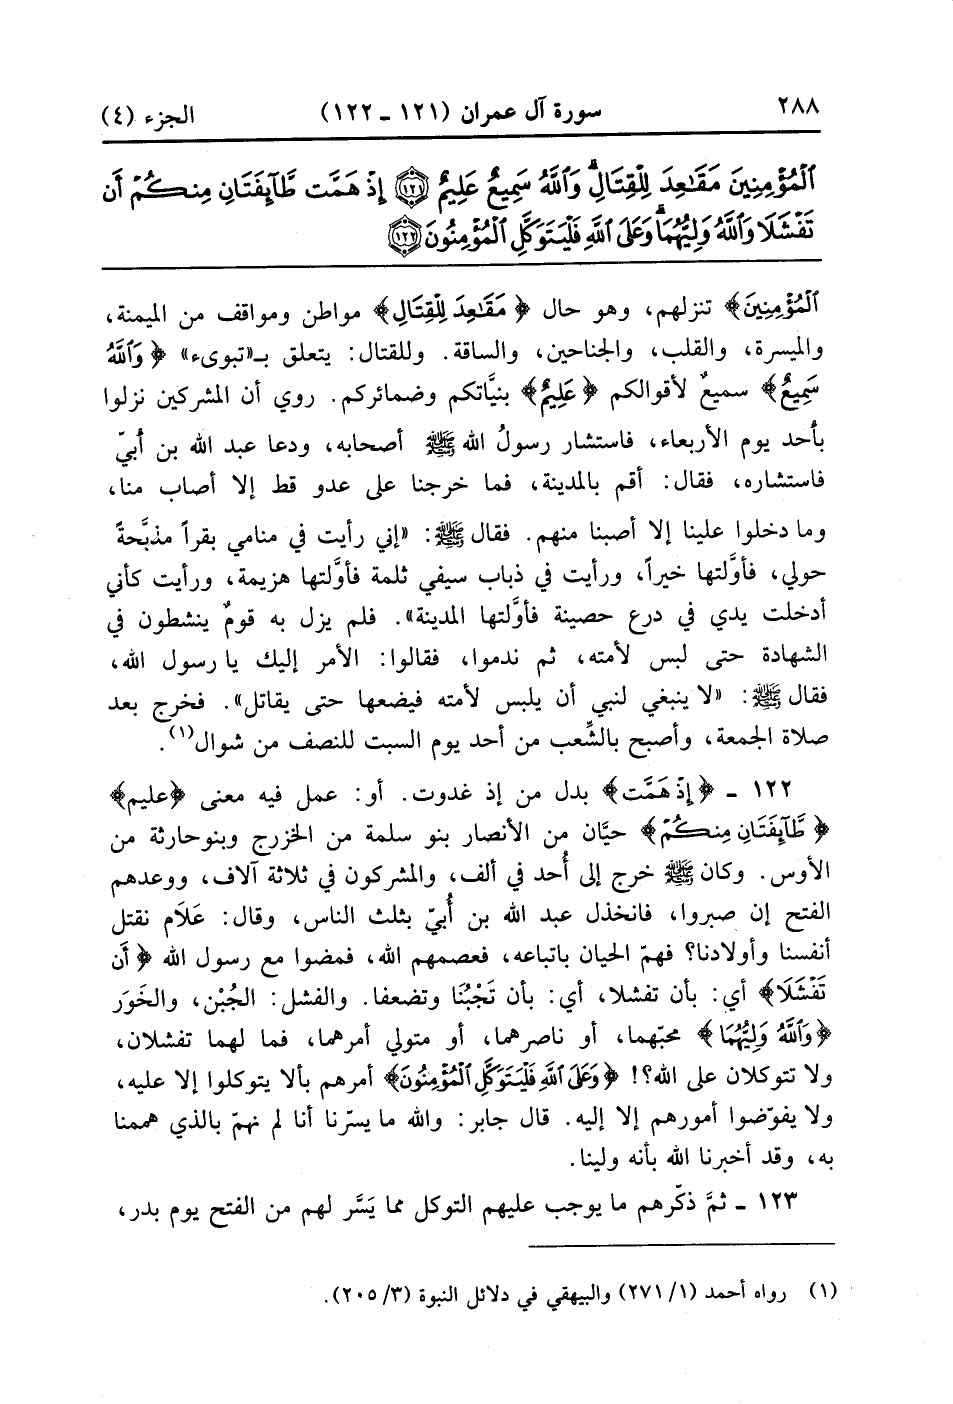 ٢٨٨
سورة آل عمران (١٢١ ـ ١٢٢)
الجزء (٤)
ٱلْمُؤْمِنِينَ مَقَٰعِدَ لِلْقِتَالِ ۗ وَٱللَّهُ سَمِيعٌ عَلِيمٌ ١٢١ إِذْ هَمَّت طَّآئِفَتَانِ مِنكُمْ أَن
تَفْشَلَا وَٱللَّهُ وَلِيُّهُمَا ۗ وَعَلَى ٱللَّهِ فَلْيَتَوَكَّلِ ٱلْمُؤْمِنُونَ ١٢٢
ٱلْمُؤْمِنِينَ﴾ تنزلهم، وهو حال ﴿مَقَٰعِدَ لِلْقِتَالِ﴾ مواطن ومواقف من الميمنة،
والميسرة، والقلب، والجناحين، والساقة. وللقتال: يتعلق بـ«تبوىء» ﴿وَٱللَّهُ
سَمِيعٌ﴾ سميعٌ لأقوالكم ﴿عَلِيمٌ﴾ بنيَّاتكم وضمائركم. روي أن المشركين نزلوا
بأحد يوم الأربعاء، فاستشار رسولُ الله ﷺ أصحابه، ودعا عبد الله بن أُبيّ
فاستشاره، فقال: أقم بالمدينة، فما خرجنا على عدو قط إلا أصاب منا،
وما دخلوا علينا إلا أصبنا منهم. فقال ﷺ: «إني رأيت في منامي بقراً مذبَّحةً
حولي، فأوَّلتها خيراً، ورأيت في ذباب سيفي ثلمة فأوَّلتها هزيمة، ورأيت كأني
أدخلت يدي في درع حصينة فأوَّلتها المدينة». فلم يزل به قومٌ ينشطون في
الشهادة حتى لبس لأمته، ثم ندموا، فقالوا: الأمر إليك يا رسول الله،
فقال ﷺ: «لا ينبغي لنبي أن يلبس لأمته فيضعها حتى يقاتل». فخرج بعد
صلاة الجمعة، وأصبح بالشِّعب من أحد يوم السبت للنصف من شوال(١).
١٢٢ ـ ﴿إِذْ هَمَّت﴾ بدل من إذ غدوت. أو: عمل فيه معنى ﴿عليم﴾
﴿طَّآئِفَتَانِ مِنكُمْ﴾ حيَّان من الأنصار بنو سلمة من الخزرج وبنو حارثة من
الأوس. وكان ﷺ خرج إلى أُحد في ألف، والمشركون في ثلاثة آلاف، ووعدهم
الفتح إن صبروا، فانخذل عبد الله بن أُبيّ بثلث الناس، وقال: عَلَام نقتل
أنفسنا وأولادنا؟ فهمّ الحيان باتباعه، فعصمهم الله، فمضوا مع رسول الله ﴿أَن
تَفْشَلَا﴾ أي: بأن تفشلا، أي: بأن تَجْبُنَا وتضعفا. والفشل: الجُبْن، والخَوَر
﴿وَٱللَّهُ وَلِيُّهُمَا﴾ محبّهما، أو ناصرهما، أو متولي أمرهما، فما لهما تفشلان،
ولا تتوكلان على الله؟! ﴿وَعَلَى ٱللَّهِ فَلْيَتَوَكَّلِ ٱلْمُؤْمِنُونَ﴾ أمرهم بألا يتوكلوا إلا عليه،
ولا يفوّضوا أمورهم إلا إليه. قال جابر: والله ما يسرّنا أنا لم نهمّ بالذي هممنا
به، وقد أخبرنا الله بأنه ولينا.
١٢٣ ـ ثمَّ ذكّرهم ما يوجب عليهم التوكل مما يَسَّر لهم من الفتح يوم بدر،
(١) رواه أحمد (١/ ٢٧١) والبيهقي في دلائل النبوة (٣/ ٢٠٥).